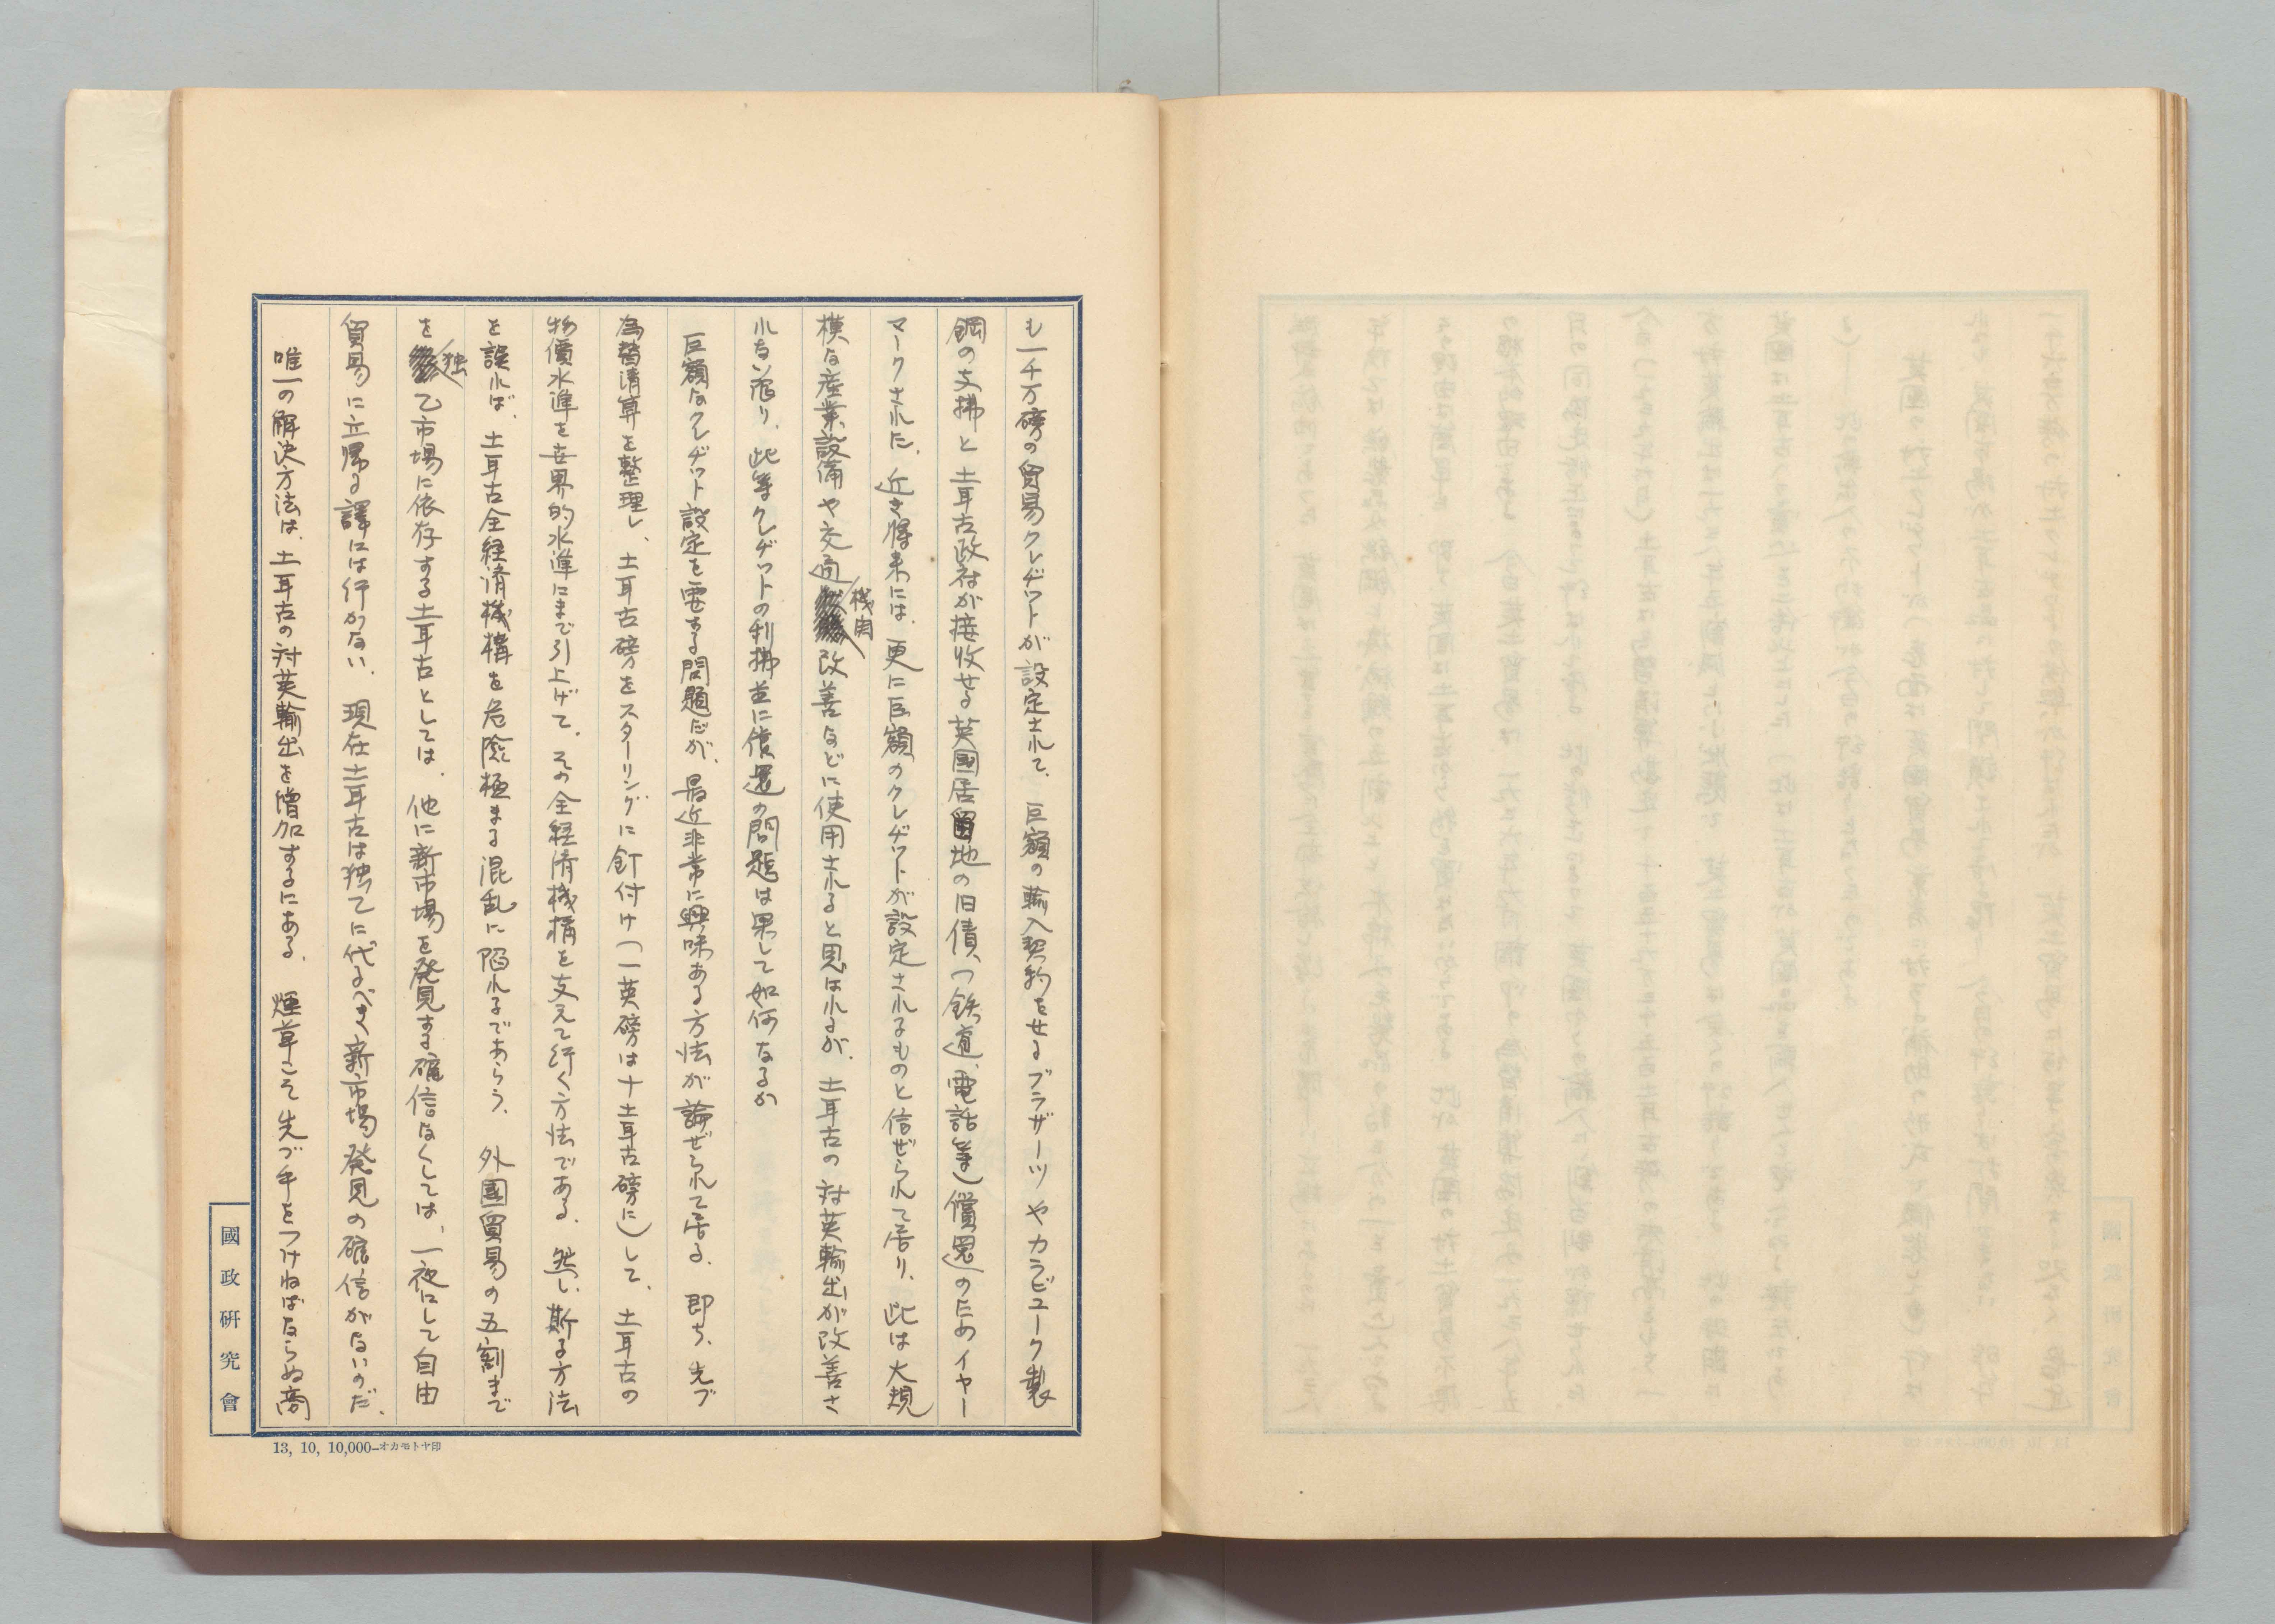 も一千万磅の貿易クレヂットが設定されて、巨額の輸入契約をせるブラザーツやカラビューク製
鋼の支拂と土耳古政府が接收せる英國居留地の旧債、(鉄道、電話等)償還のためイヤー
マークされた。近き将来には、更に巨額のクレヂットが設定されるものと信ぜられて居り、此は大規
模な産業設備や交通機関改善などに使用されると思はれるが、土耳古の対英輸出が改善さ
れない限り、此等クレヂットの利拂並に償還の問題は果して如何なるか
巨額なクレヂット設定を要する問題だが、最近非常に興味ある方法が論ぜられて居る。即ち、先づ
為替清算を整理し、土耳古磅をスターリングに釘付け(一英磅は十土耳古磅に)して、土耳古の
物價水準を世界的水準にまで引上げて、その全経済機構を支えて行く方法である。然し、斯る方法
を誤れば、土耳古全経済機構を危険極まる混乱に陥れるであらう。外國貿易の五割まで
を独乙市場に依存する土耳古としては、他に新市場を発見する確信なくしては、一夜にして自由
貿易に立帰る譯には行かない。現在土耳古は独乙に代るべき新市場発見の確信がないのだ。
唯一の解決方法は、土耳古の対英輸出を増加するにある。煙草こそ先づ手をつけねばならぬ商
國政研究會
13, 10, 10,000—オカモトヤ印